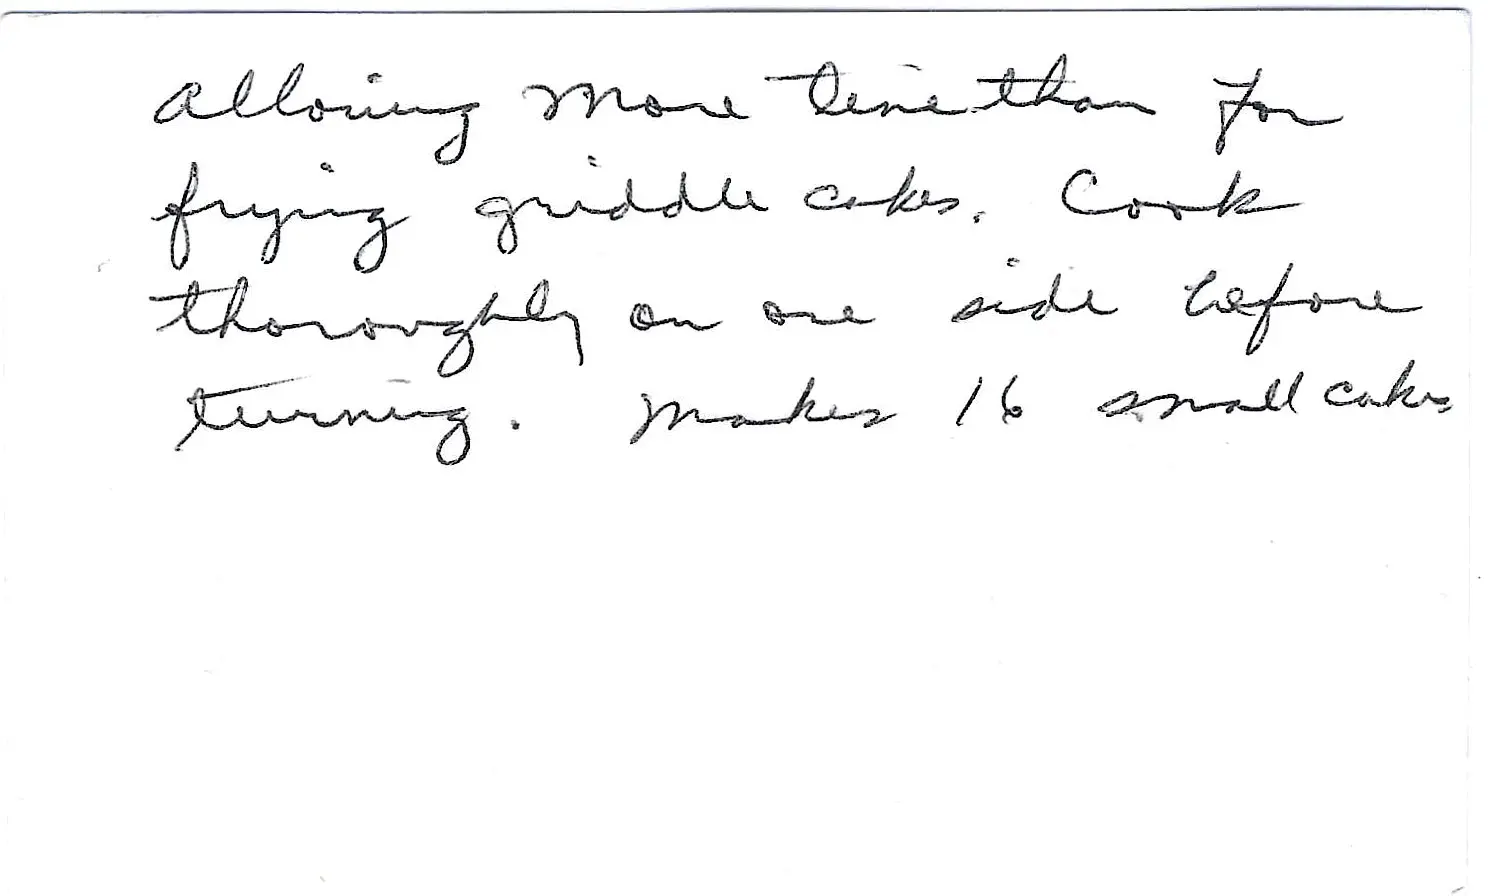 allowing more time than for
frying griddle cakes. Cook
thoroughly on one side before
turning. Makes 16 small cakes